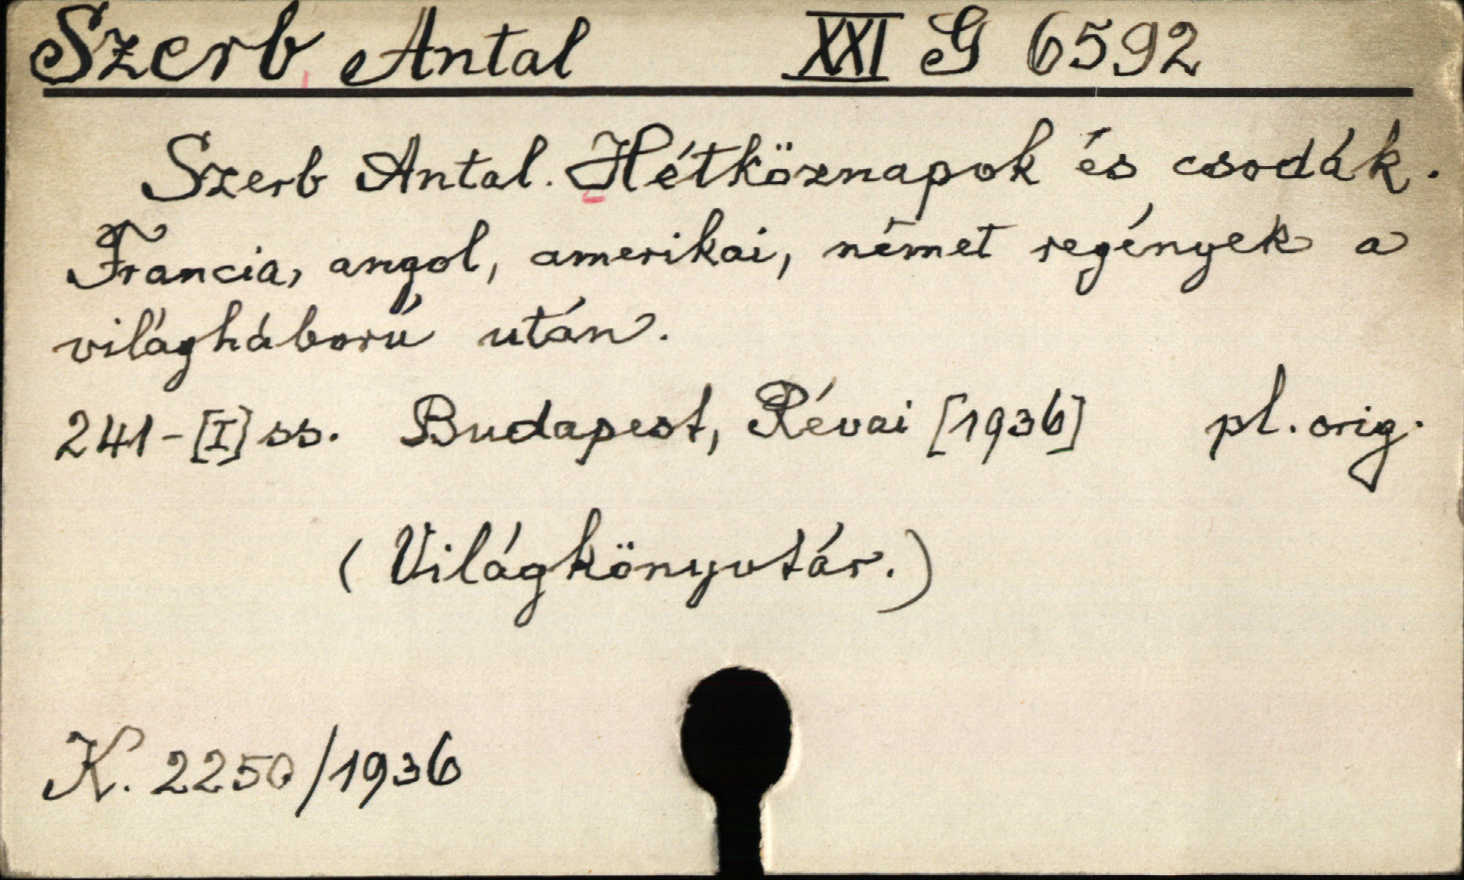 Szerb Antal XXI G 6592
Szerb Antal. Hétköznapok és csodák.
Francia, angol, amerikai, német regények a
világháború után.
241-[I] ss. Budapest, Révai [1936] pl. orig.
(Világkönyvtár.)
K. 2250/1936